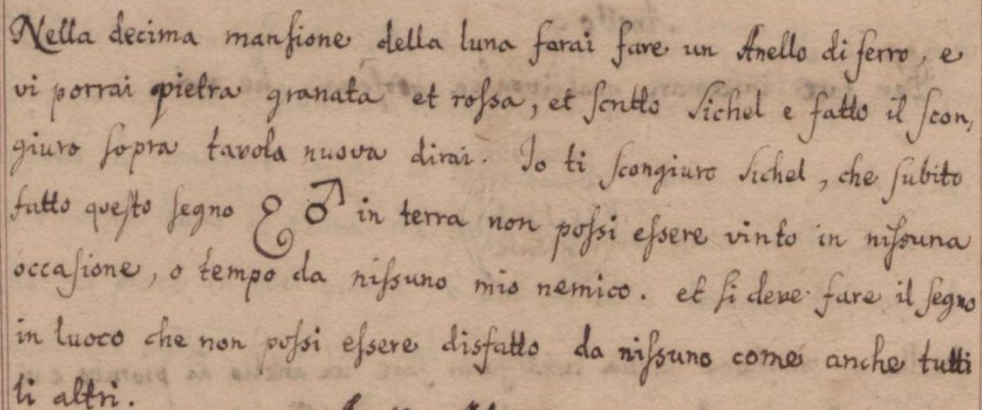 Nella decima mansione della luna farai fare un Anello di ferro, e
vi porrai pietra granata et rossa, et scritto Sichel e fatto il scon,
giuro sopra tavola nuova dirai. Io ti scongiuro Sichel, che subito
fatto questo segno ♂ in terra non possi essere vinto in nissuna
occasione, o tempo da nissuno mio nemico. et si deve fare il segno
in luoco che non possi essere disfatto da nissuno come anche tutti
li altri.